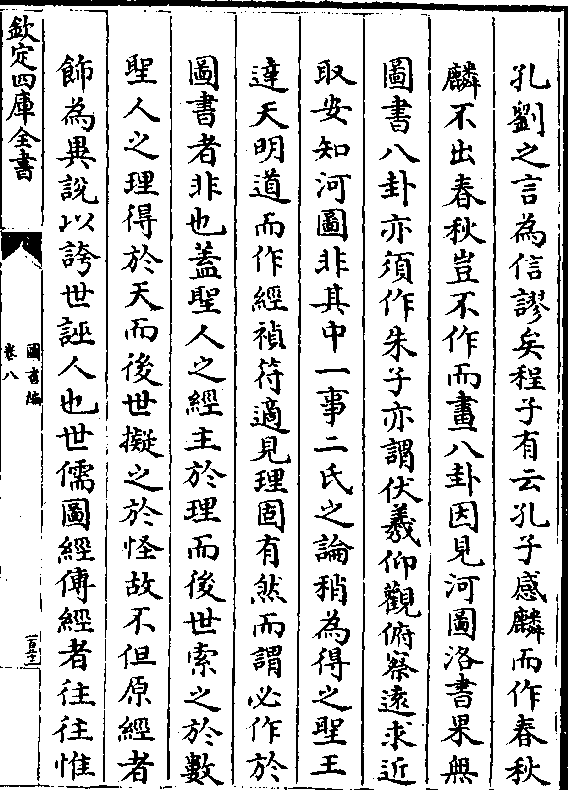 孔劉之言為信謬矣程子有云孔子感麟而作春秋
麟不出春秋豈不作而畫八卦因見河圖洛書果無
圖書八卦亦須作朱子亦謂伏羲仰觀俯察逺求近
取安知河圖非其中一事二氏之論稍為得之聖王
達天明道而作經禎符適見理固有然而謂必作於
圖書者非也蓋聖人之經主於理而後世索之於數
聖人之理得於天而後世擬之於怪故不但原經者
飾為異説以誇世誣人也世儒圖經傳經者往往惟
欽定四庫全書
圖書編
卷八